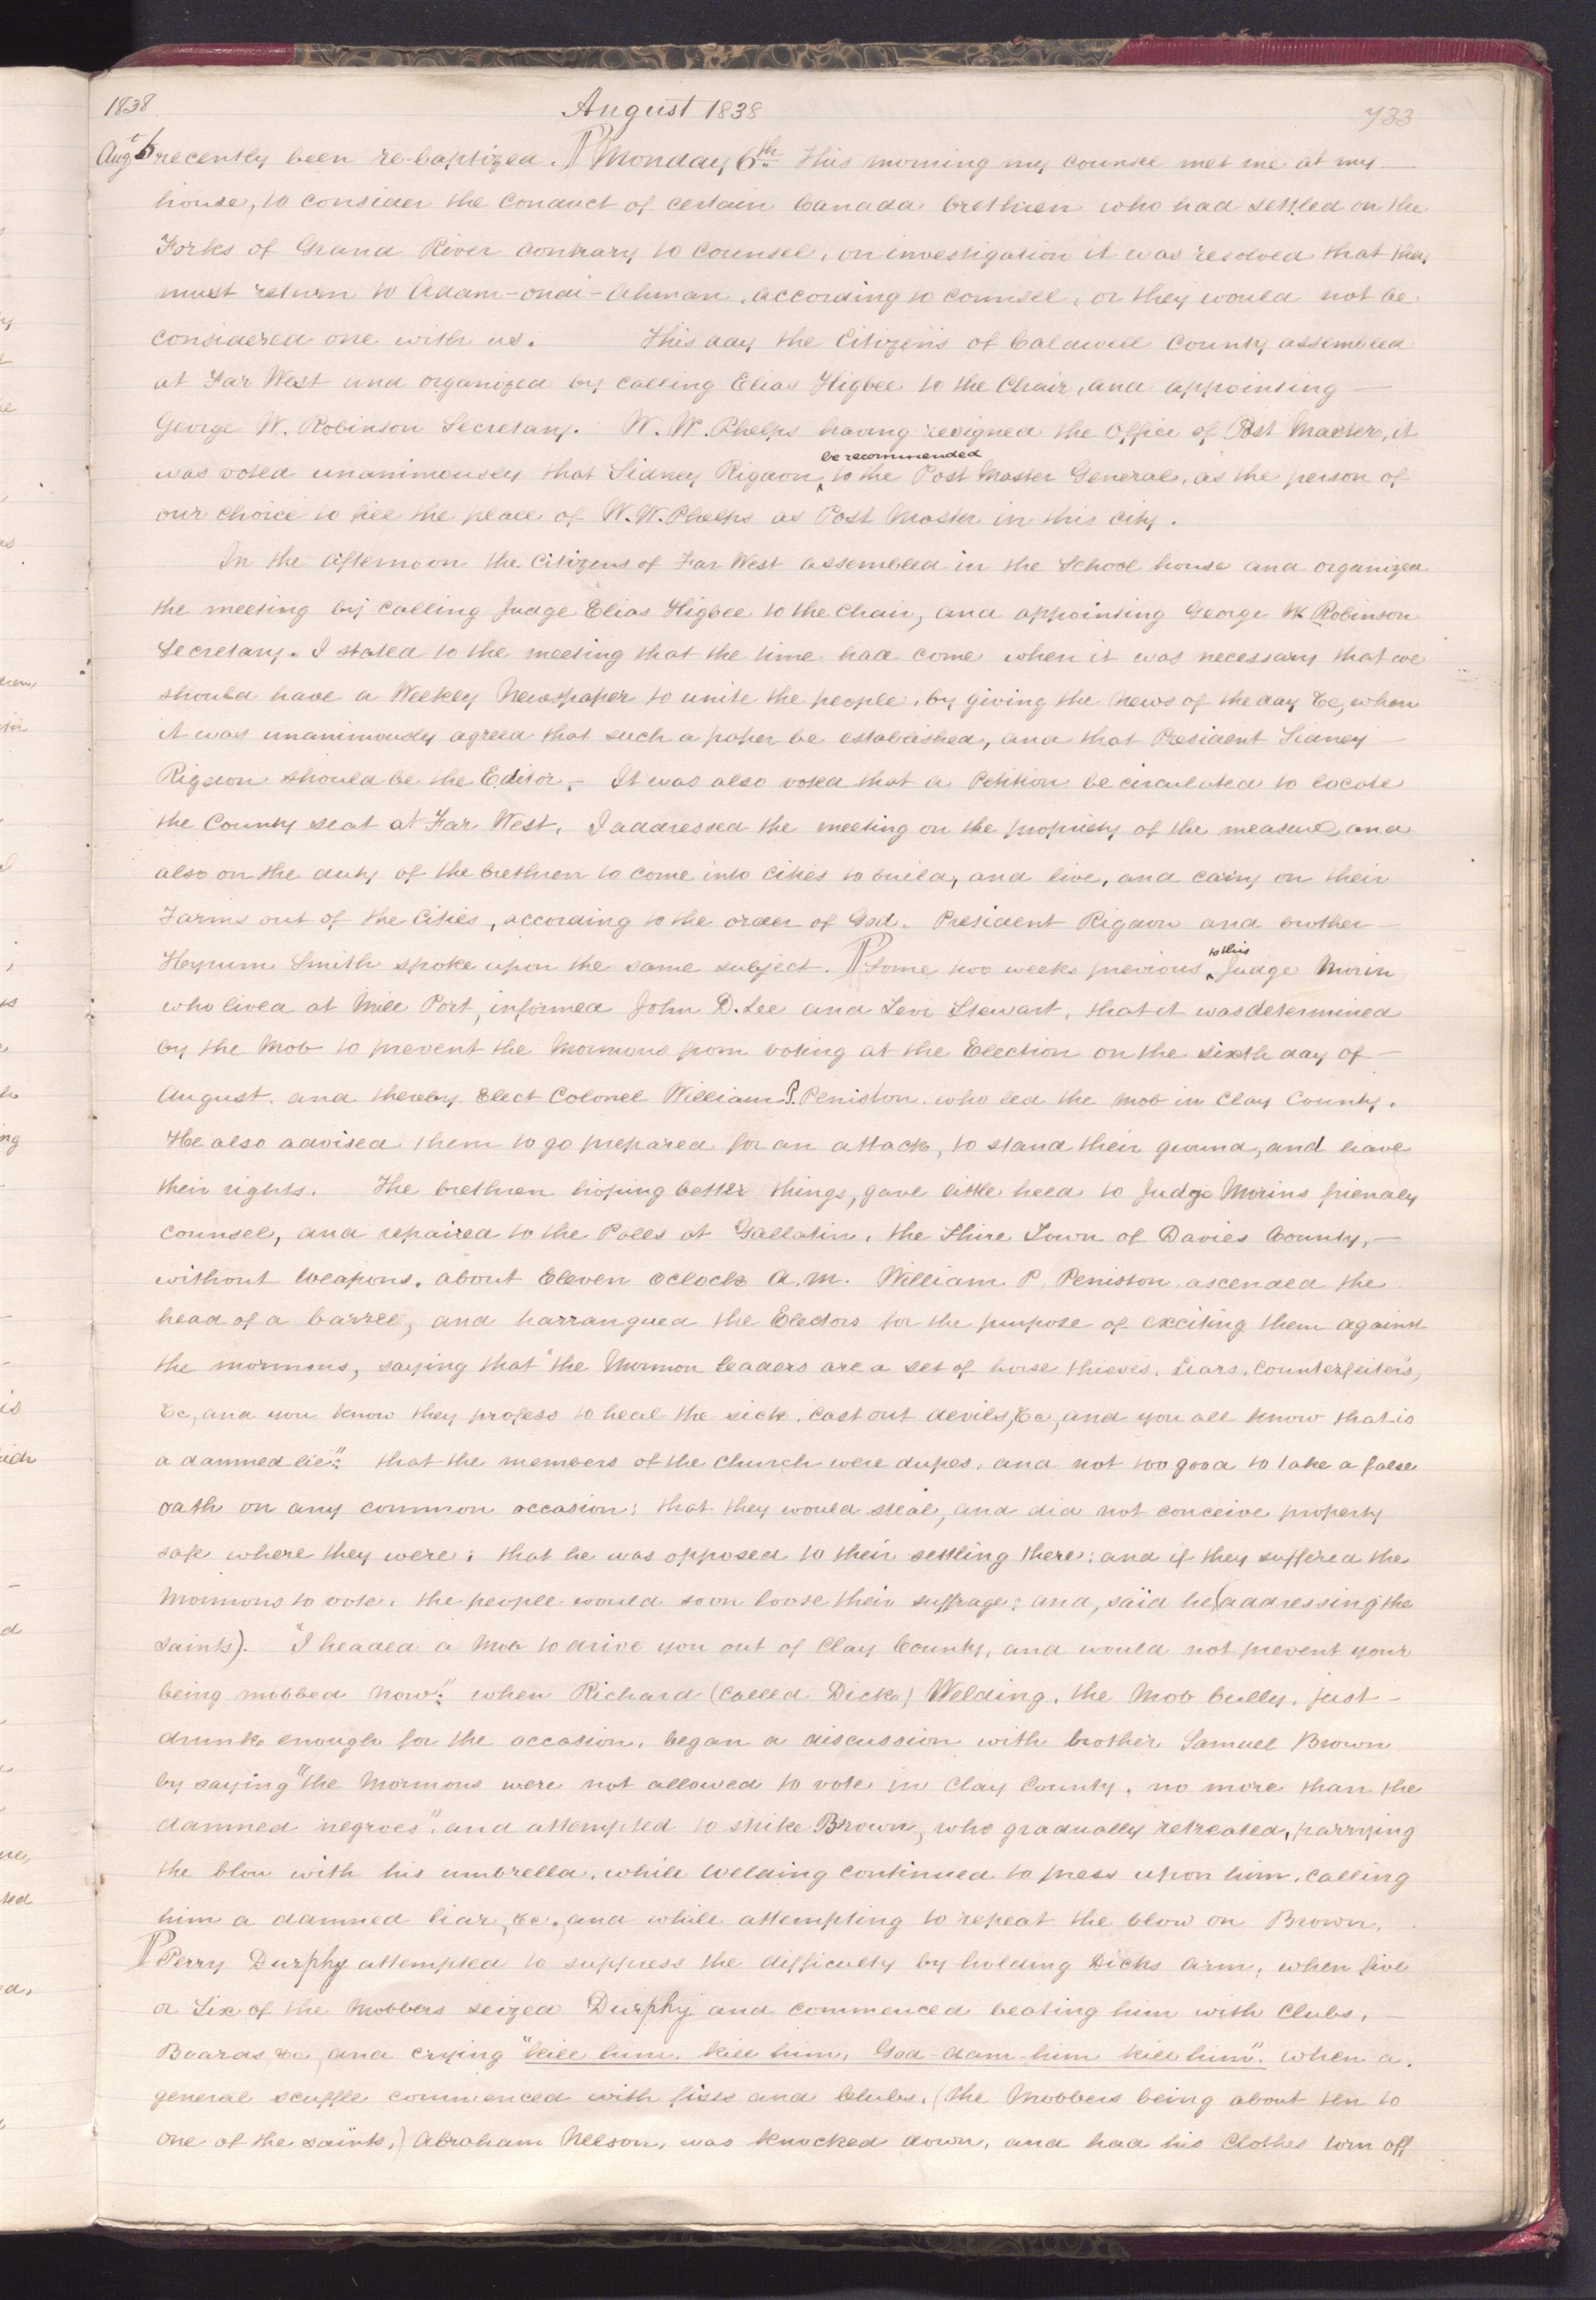 1838 August 1838 733
Augt 6 recently been re-baptized. ¶ Monday 6th. This morning my counsel met me at my —
house, to consider the conduct of certain Canada brethren who had settled on the
Forks of Grand River contrary to counsel, on investigation it was resolved that they
must return to Adam-ondi-Ahman, according to counsel, or they would not be
considered one with us. This day the Citizens of Caldwell County assembled
at Far West and organized by calling Elias Higbee to the Chair, and appointing —
George W. Robinson Secretary. W. W. Phelps having resigned the Office of Post Master, it
be recommended
was voted unanimously that Sidney Rigdon ‸ to the Post Master General, as the person of
our choice to fill the place of W. W. Phelps as Post Master in this city.
In the afternoon the Citizens of Far West assembled in the School house and organized
the meeting by calling Judge Elias Higbee to the chair, and appointing George W. Robinson
Secretary. I stated to the meeting that the time had come when it was necessary that we
should have a Weekly Newspaper to unite the people, by giving the news of the day &c, when
it was unanimously agreed that such a paper be established, and that President Sidney —
Rigdon should be the Editor. — It was also voted that a Petition be circulated to locate
the County seat at Far West. I addressed the meeting on the propriety of the measure, and
also on the duty of the brethren to come into Cities to build, and live, and carry on their
Farms out of the Cities, according to the order of God. President Rigdon and brother —
to this
Hyrum Smith spoke upon the same subject. ¶ Some two weeks previous ‸ Judge Morin
who lived at Mill Port, informed John D. Lee and Levi Stewart, that it was determined
by the Mob to prevent the Mormons from voting at the Election on the sixth day of —
August, and thereby Elect Colonel William P. Peniston, who led the mob in Clay County.
He also advised them to go prepared for an attack, to stand their ground, and have
their rights. The brethren hoping better things, gave little heed to Judge Morins friendly
counsel, and repaired to the Polls at Gallatin, the Shire Town of Davies County, —
without weapons. about Eleven oclock A.M. William P. Peniston ascended the
head of a barrel, and harrangued the Electors for the purpose of exciting them against
the mormons, saying that "the Mormon leaders are a set of horse thieves, Liars, counterfeiters,
&c, and you know they profess to heal the sick, cast out devils, &c, and you all know that is
a damned lie": that the members of the church were dupes, and not too good to take a false
oath on any common occasion; that they would steal, and did not conceive property
safe where they were; that he was opposed to their settling there; and if they suffered the
Mormons to vote, the people would soon loose their suffrage; and, said he (addressing the
saints). "I headed a Mob to drive you out of Clay County, and would not prevent your
being mobbed now": when Richard (called Dick) Welding, the Mob bully, just —
drunk enough for the occasion, began a discussion with brother Samuel Brown
by saying "the Mormons were not allowed to vote in Clay County, no more than the
damned negroes", and attempted to strike Brown, who gradually retreated, parrying
the blow with his umbrella, while Welding continued to press upon him, calling
him a damned liar, &c, and while attempting to repeat the blow on Brown,
¶ Perry Durphy attempted to suppress the difficulty by holding Dicks arm, when five
or Six of the Mobbers seized Durphy and commenced beating him with Clubs, —
Boards &c, and crying "kill him, kill him, God-dam-him kill him". when a
general scuffle commenced with fists and Clubs, (the Mobbers being about ten to
one of the saints,) Abraham Nelson, was knocked down, and had his Clothes torn off